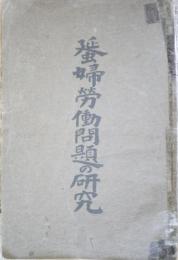 蜑婦労働問題の研究